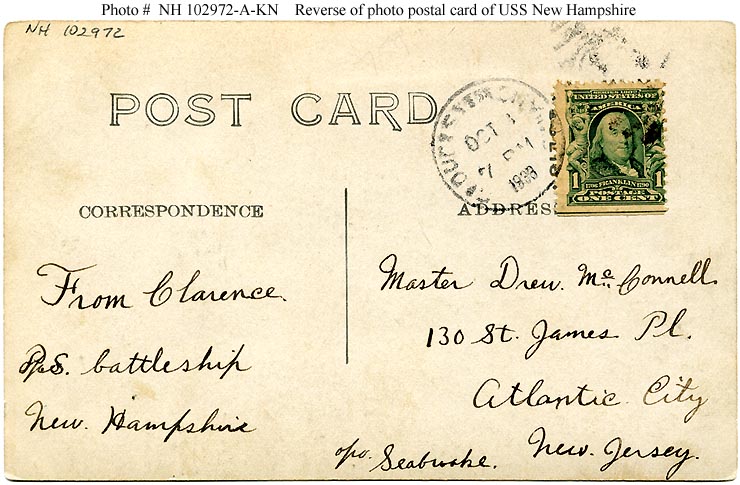 Photo # NH 102972-A-KN Reverse of photo postal card of USS New Hampshire
NH 102972
POST CARD
OCT
7 PM
SERIES 1902
UNITED STATES OF
AMERICA
1 1706 FRANKLIN 1790 1
POSTAGE
ONE CENT
CORRESPONDENCE
ADDRES
From Clarence.
battleship
New. Hampshire
Master Drew. Mc Connell.
130 St. James Pl.
Atlantic City
New. Jersey.